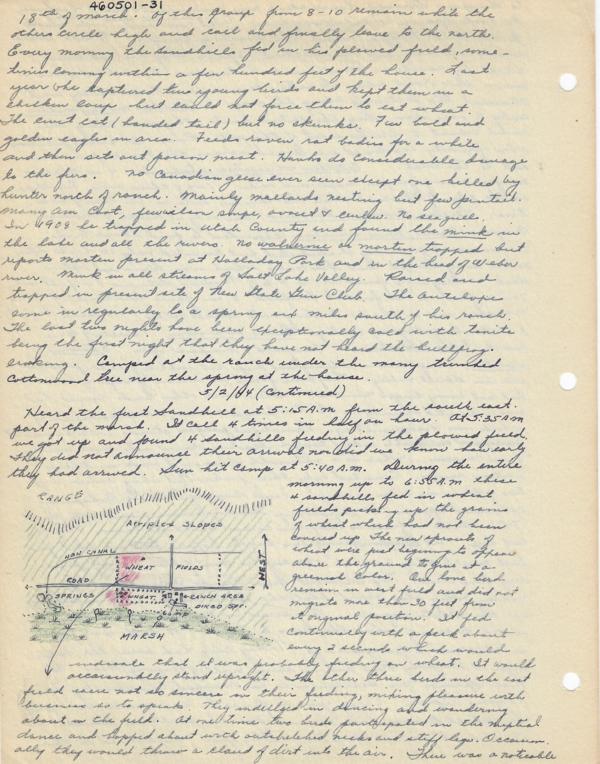 460501-31
18th of march. Of this group from 8-10 remain while the
others circle high and call and finally leave to the north.
Every morning the sandhills fed in his plowed field, some-
times coming within a few hundred feet of the house. Last
year he captured two young birds and kept them in a
chicken coup but could not force them to eat wheat.
The civet cat (banded tail) but no skunks. Few bald and
golden eagles in area. Feeds raven rat bodies for a while
and then sets out poison meat. Hawks do considerable damage
to the furs. No Canadian geese ever seen except one killed by
hunter north of ranch. Mainly mallards nesting but few pintail.
Many Am Coot, few wilson snipe, avocet & curlew. No sea gulls.
In 1908 he trapped in Utah County and found the mink in
the lake and all the rivers. No wolverine or marten trapped but
reports marten present at Halladay Park and in the head of Weber
river. Mink in all streams of Salt Lake Valley. Raised and
trapped in present site of New State Gun Club. The antelope
come in regularly to a spring six miles south of his ranch.
The last two nights have been exceptionally cold with tonite
being the first night that they have not heard the bullfrog
croaking. Camped at the ranch under the many trunked
Cottonwood tree near the spring at the house.
5/2/44 (Continued)
Heard the first Sandhill at 5:15 A.m from the south east
part of the marsh. It call 4 times in half an hour. At 5:35 AM
we got up and found 4 sandhills feeding in the plowed feed.
They did not announce their arrival nor did we know how early
they had arrived. Sun hit camp at 5:40 A.M. During the entire
morning up to 6:55 A.M these
4 sandhills fed in wheat
fields picking up the grains
of wheat which had not been
covered up The new sprouts of
wheat were just beginning to appear
above the ground to give it a
greenish color. One lone bird
remain in west field and did not
migrate more than 30 feet from
it original position. It fed
continuously with a peck about
every 2 seconds which would
RANGE
Atriplex SLOPES
CANAL
WHEAT
FIELDS
WEST
ROAD
SPRINGS
WHEAT
RANCH AREA
MARSH
indicate that it was probably feeding on wheat. It would
occasionally stand upright. The other three birds in the east
field were not so sincere in their feeding, mixing pleasure with
business so to speak. They indulged in dancing and wandering
about in the field. At one time two birds participated in the nuptial
dance and hopped about with outstretched necks and stiff legs. Occasion-
ally they would throw a cloud of dirt into the air. There was a noticeable